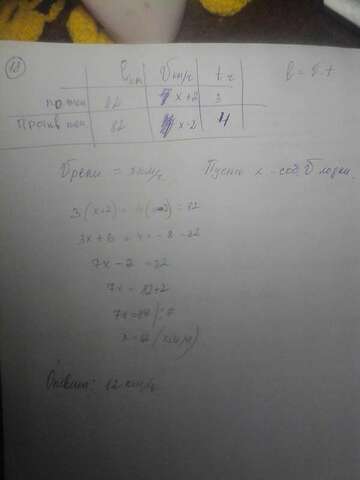 l км | V км/ч | t ч    l = V · t
по теч | 82 | x+2 | 3
Против теч | 82 | x-2 | 4
V реки = 2 км/ч    Пусть x - соб. V лодки.
3(x+2) + 4(x-2) = 82
3x + 6 + 4x - 8 = 82
7x - 2 = 82
7x = 82+2
7x = 84 |:7
x = 12 (км/ч)
Ответ: 12 км/ч